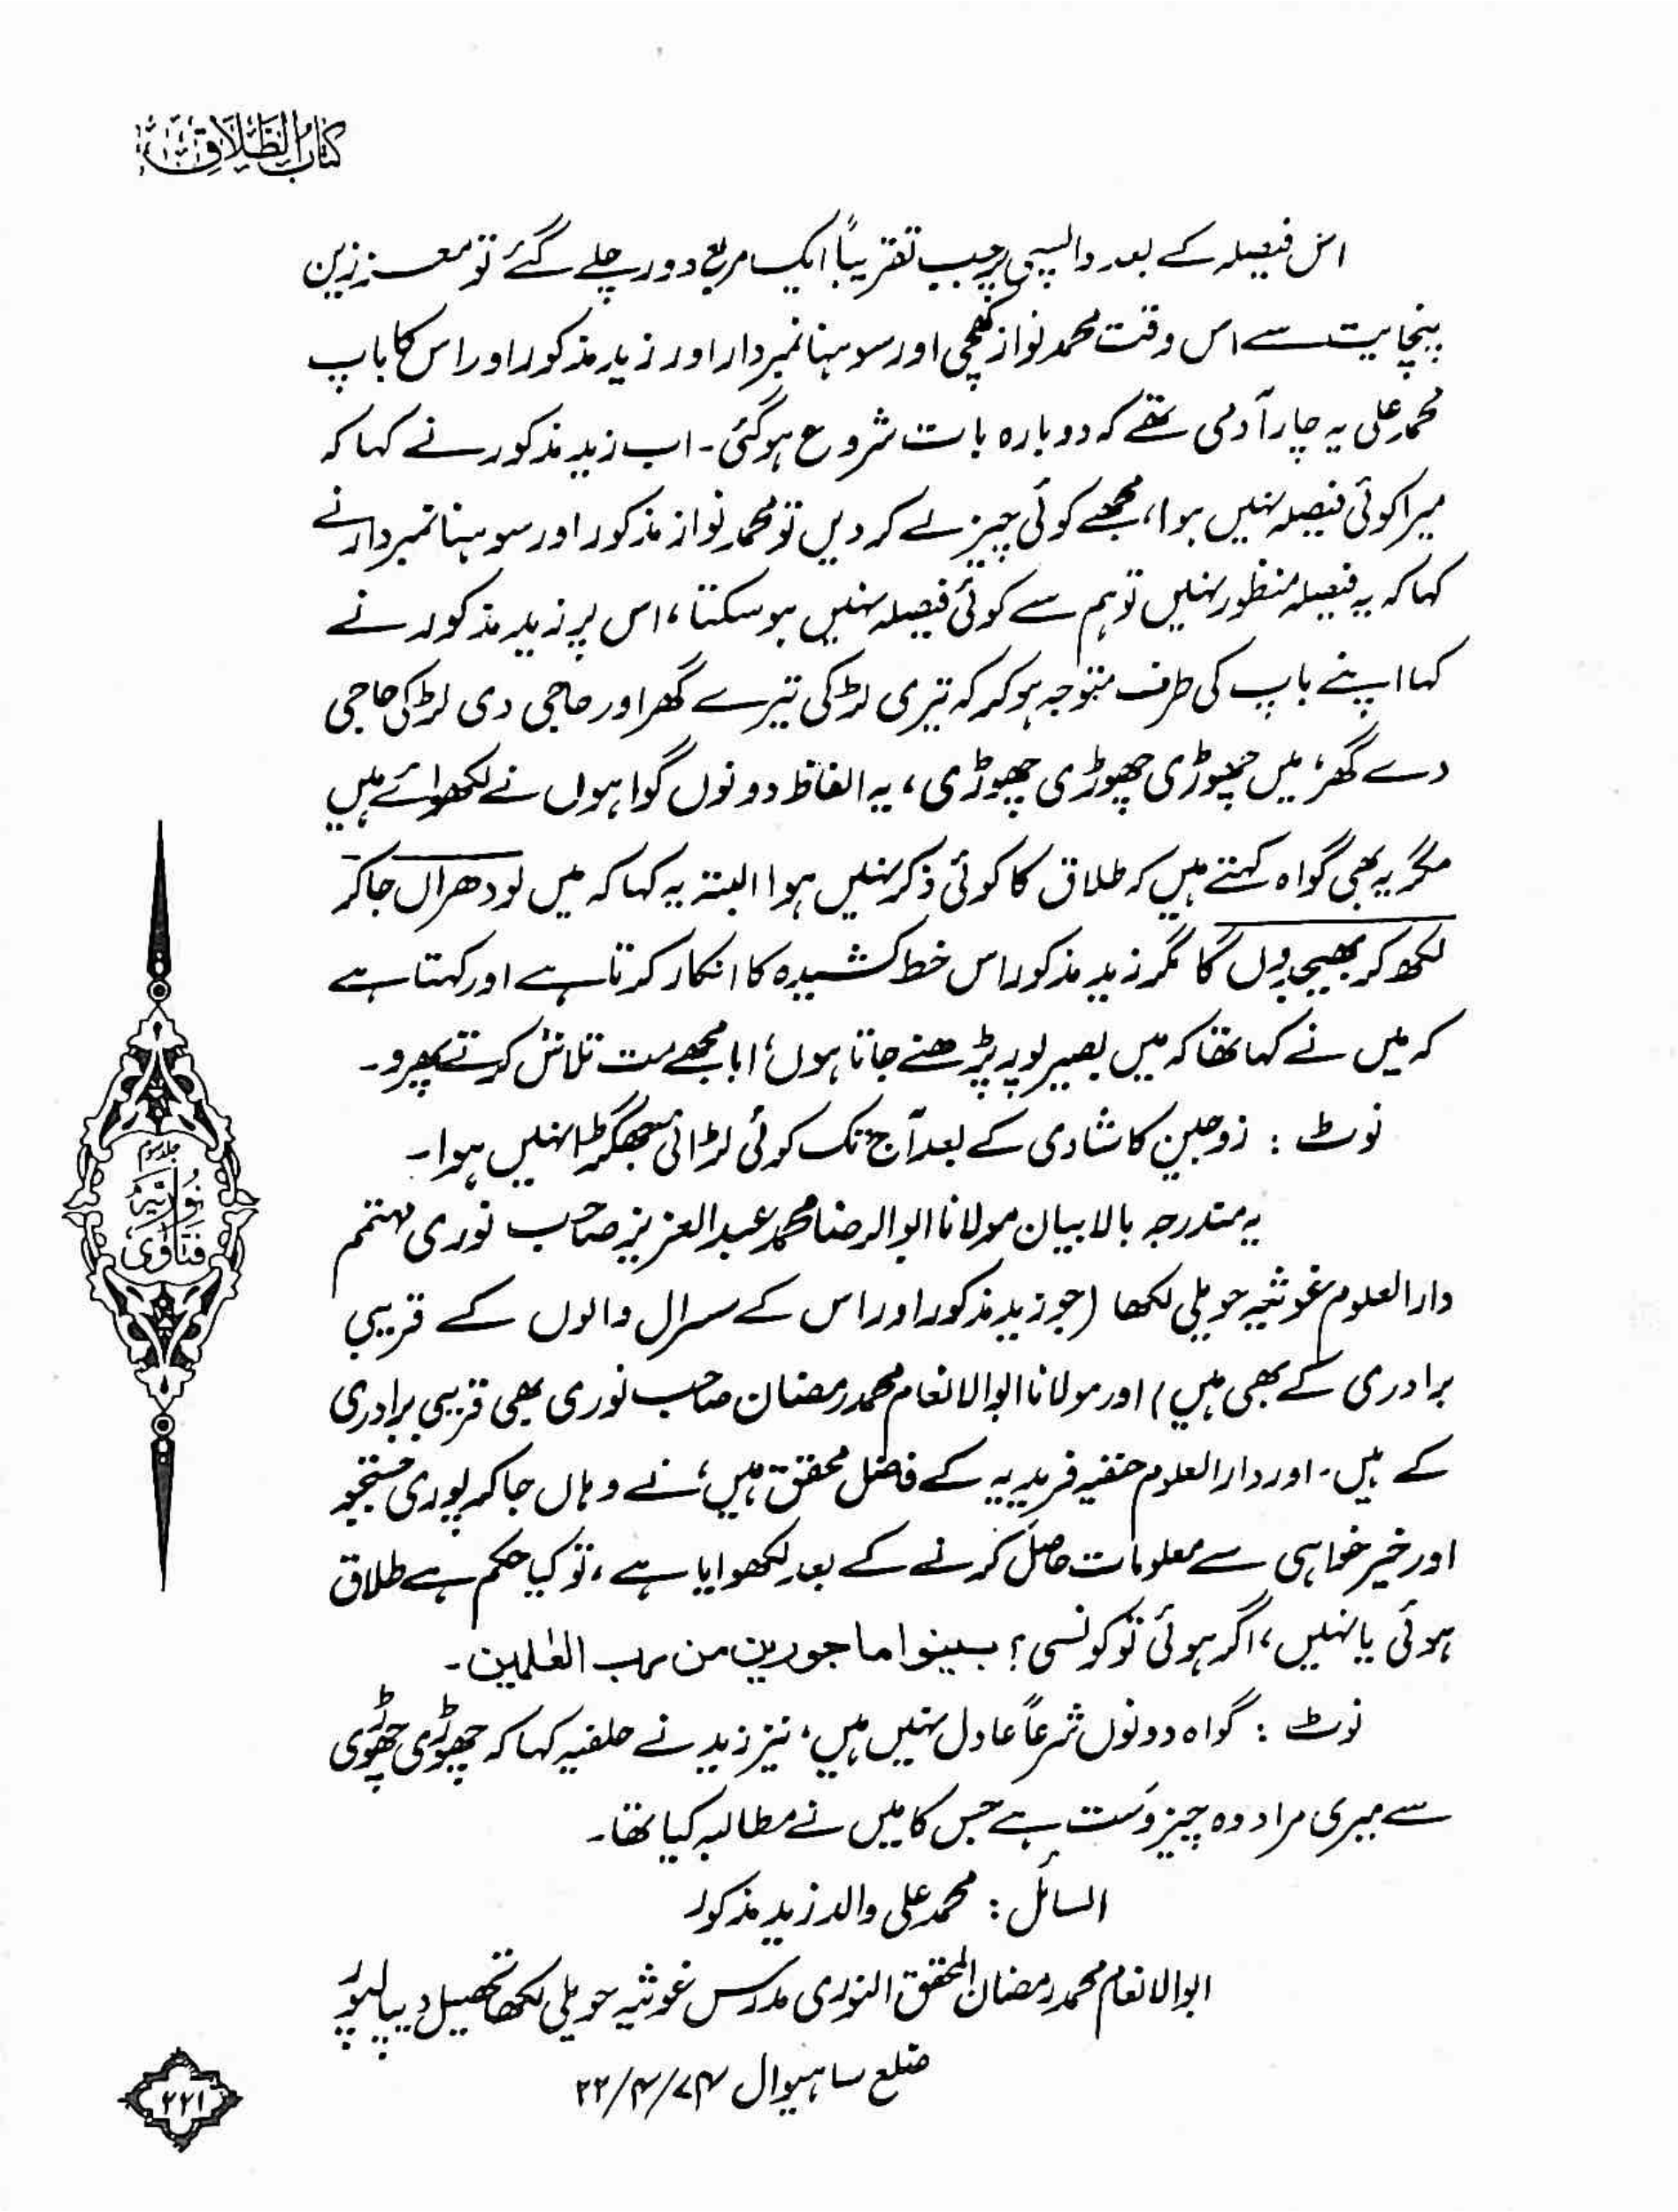 کتاب الطلاق
اس فیصلہ کے بعد واپسی پر جب تقریباً ایک مربع دور چلے گئے تو معززین
پنچایت سے اس وقت محمد نواز کھچی اور سوہنا نمبردار اور زید مذکور اور اس کا باپ
محمد علی یہ چار آدمی تھے کہ دوبارہ بات شروع ہوگئی۔ اب زید مذکور نے کہا کہ
میرا کوئی فیصلہ نہیں ہوا، مجھے کوئی چیز لے کر دیں تو محمد نواز مذکور اور سوہنا نمبردار نے
کہا کہ یہ فیصلہ منظور نہیں تو ہم سے کوئی فیصلہ نہیں ہو سکتا، اس پر زید مذکور نے
کہا اپنے باپ کی طرف متوجہ ہو کر کہ تیری لڑکی تیرے گھر اور حاجی دی لڑکی حاجی
دے گھر، میں چھوڑی چھوڑی چھوڑی، یہ الفاظ دونوں گواہوں نے لکھوائے ہیں
مگر یہ بھی گواہ کہتے ہیں کہ طلاق کا کوئی ذکر نہیں ہوا البتہ یہ کہا کہ میں لودھراں جا کر
لکھ کر بھیج دوں گا مگر زید مذکور اس خط کشیدہ کا انکار کرتا ہے اور کہتا ہے
کہ میں نے کہا تھا کہ میں بصیر پور پڑھنے جاتا ہوں، ابا مجھے مت تلاش کرتے پھرو۔
نوٹ : زوجین کا شادی کے بعد آج تک کوئی لڑائی جھگڑا نہیں ہوا۔
یہ مندرجہ بالا بیان مولانا ابوالرضا محمد عبدالعزیز صاحب نوری مہتمم
دارالعلوم غوثیہ حویلی لکھا (جو زید مذکور اور اس کے سسرال والوں کے قریبی
برادری کے بھی ہیں) اور مولانا ابوالانعام محمد رمضان صاحب نوری بھی قریبی برادری
کے ہیں۔ اور دارالعلوم حنفیہ فریدیہ کے فاضل محقق ہیں، نے وہاں جا کر پوری جستجو
اور خیر خواہی سے معلومات حاصل کرنے کے بعد لکھوایا ہے، تو کیا حکم ہے طلاق
ہوئی یا نہیں، اگر ہوئی تو کونسی؟ بینوا ماجورین من رب العٰلمین۔
نوٹ : گواہ دونوں شرعاً عادل نہیں ہیں، نیز زید نے حلفیہ کہا کہ چھوڑی چھوڑی
سے میری مراد وہ چیز وست ہے جس کا میں نے مطالبہ کیا تھا۔
السائل : محمد علی والد زید مذکور
ابوالانعام محمد رمضان المحقق النوری مدرس غوثیہ حویلی لکھا تحصیل دیپالپور
ضلع ساہیوال ۲۲/۴/۷۴
جلد سوم
فتاویٰ نوریہ
۲۲۱